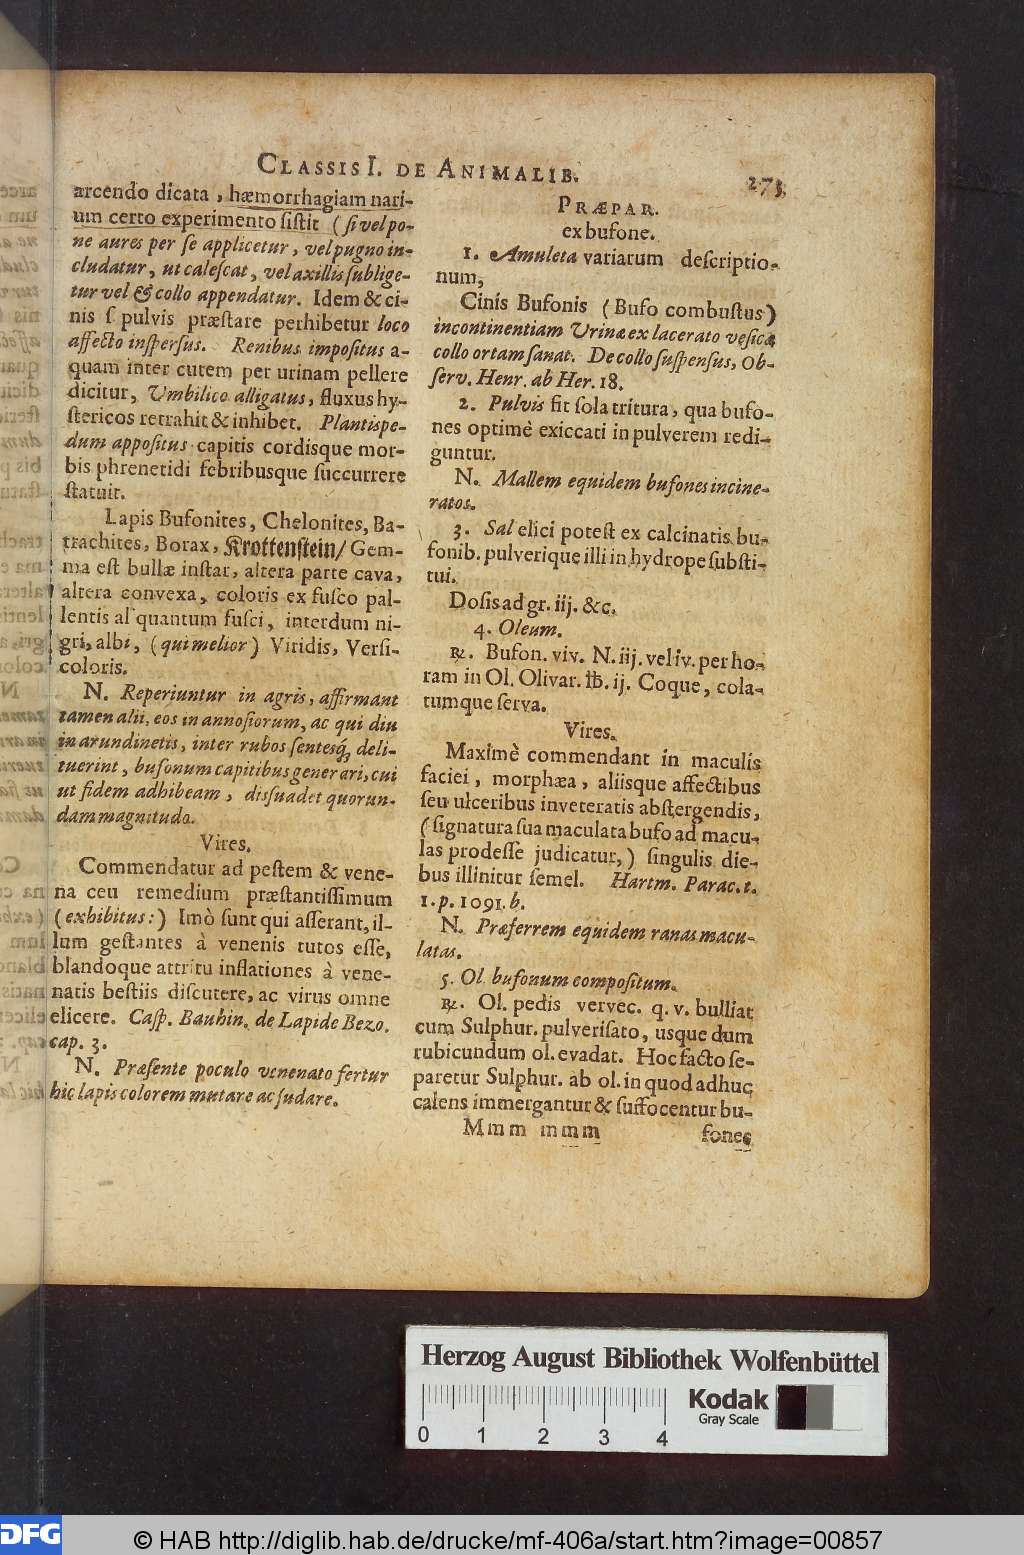 CLASSIS I. DE ANIMALIB.
273
arcendo dicata, hæmorrhagiam nari-
um certo experimento ſiſtit (ſi vel po-
ne aures per ſe applicetur, vel pugno in-
cludatur, ut caleſcat, vel axillis ſublige-
tur vel & collo appendatur. Idem & ci-
nis ſ. pulvis præſtare perhibetur loco
affecto inſperſus. Renibus impoſitus a-
quam inter cutem per urinam pellere
dicitur, Umbilico alligatus, fluxus hy-
ſtericos retrahit & inhibet. Plantis pe-
dum appoſitus capitis cordisque mor-
bis phrenetidi febribusque ſuccurrere
ſtatuit.
Lapis Bufonites, Chelonites, Ba-
trachites, Borax, Krottenſtein/ Gem-
ma eſt bullæ inſtar, altera parte cava,
altera convexa, coloris ex fuſco pal-
lentis al quantum fuſci, interdum ni-
gri, albi, (qui melior) Viridis, Verſi-
coloris.
N. Reperiuntur in agris, affirmant
tamen alii, eos in annoſiorum, ac qui diu
in arundinetis, inter rubos ſentesq́; deli-
tuerint, bufonum capitibus generari, cui
ut fidem adhibeam, diſſuadet quorun-
dam magnitudo.
Vires.
Commendatur ad peſtem & vene-
na ceu remedium præſtantiſſimum
(exhibitus:) Imò ſunt qui aſſerant, il-
lum geſtantes à venenis tutos eſſe,
blandoque attritu inflationes à vene-
natis beſtiis diſcutere, ac virus omne
elicere. Caſp. Bauhin. de Lapide Bezo.
cap. 3.
N. Præſente poculo venenato fertur
hic lapis colorem mutare ac ſudare.
PRÆPAR.
ex bufone.
1. Amuleta variarum deſcriptio-
num,
Cinis Bufonis (Bufo combuſtus)
incontinentiam Urinæ ex lacerato veſicæ
collo ortam ſanat. De collo ſuſpenſus, Ob-
ſerv. Henr. ab Her. 18.
2. Pulvis fit ſola tritura, qua bufo-
nes optimè exiccati in pulverem redi-
guntur.
N. Mallem equidem bufones incine-
ratos.
3. Sal elici poteſt ex calcinatis bu-
fonib. pulverique illi in hydrope ſubſti-
tui.
Doſis ad gr. iij. &c.
4. Oleum.
℞. Bufon. viv. N. iij. vel iv. per ho-
ram in Ol. Olivar. ℔. ij. Coque, cola-
tumque ſerva.
Vires.
Maximè commendant in maculis
faciei, morphæa, aliisque affectibus
ſeu ulceribus inveteratis abſtergendis,
(ſignatura ſua maculata bufo ad macu-
las prodeſſe judicatur,) ſingulis die-
bus illinitur ſemel. Hartm. Parac. t.
1. p. 1091. b.
N. Præferrem equidem ranas macu-
latas.
5. Ol. bufonum compoſitum.
℞. Ol. pedis vervec. q. v. bulliat
cum Sulphur. pulveriſato, usque dum
rubicundum ol. evadat. Hoc facto ſe-
paretur Sulphur. ab ol. in quod adhuc
calens immergantur & ſuffocentur bu-
Mmm mmm
fones
Herzog August Bibliothek Wolfenbüttel
Kodak
Gray Scale
0 1 2 3 4
DFG
© HAB http://diglib.hab.de/drucke/mf-406a/start.htm?image=00857